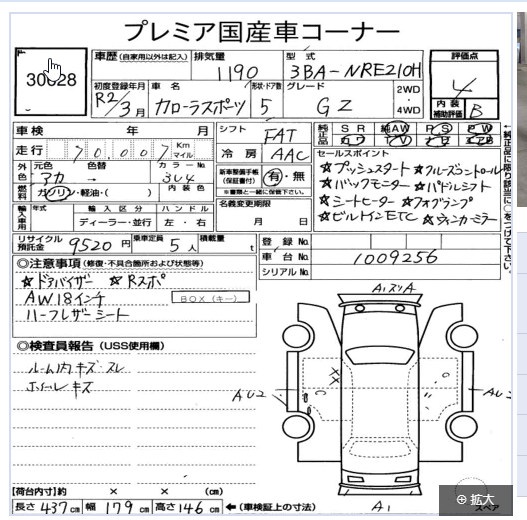 プレミア国産車コーナー
30028
車歴 (自家用以外は記入) 排気量 型式 評価点
1190 3BA-NRE210H 4
初度登録年月 車名 形状・ドア数 グレード 2WD 内装
R2/3月 カローラスポーツ 5 GZ ・ 4WD 補助評価 B
車検 年 月 シフト FAT 純正品 SR 純AW PS PW
走行 70,007 Km マイル 冷房 AAC
外色 元色 色替 カラーNo. セールスポイント
アカ → 3U4 新車整備手帳(保証書付) 有・無
燃料 ガソリン・軽油・( ) 内装色
☆プッシュスタート ☆クルーズコントロール
☆バックモニター ☆パドルシフト
☆シートヒーター ☆フォグランプ
☆ビルトインETC ☆ウィンカーミラー
←純正品に限り該当に○をつけて下さい。
輸入車用 年式 輸入区分 ハンドル 名義変更期限
ディーラー・並行 左・右 月 日
リサイクル預託金 9520円 乗車定員 5人 積載量 t
登録No.
車台No. 1009256
シリアルNo.
◎注意事項 (修復・不具合箇所および状態等)
☆ドアバイザー ☆Rスポ
AW18インチ BOX(キー)
ハーフレザーシート
◎検査員報告 (USS使用欄)
ルーム内キズ スレ
ホイールキズ
A1スリA
AU2
A1
スペア
【荷台内寸】約 × × (cm)
長さ 437cm 幅 179cm 高さ 146cm ←(車検証上の寸法)
拡大